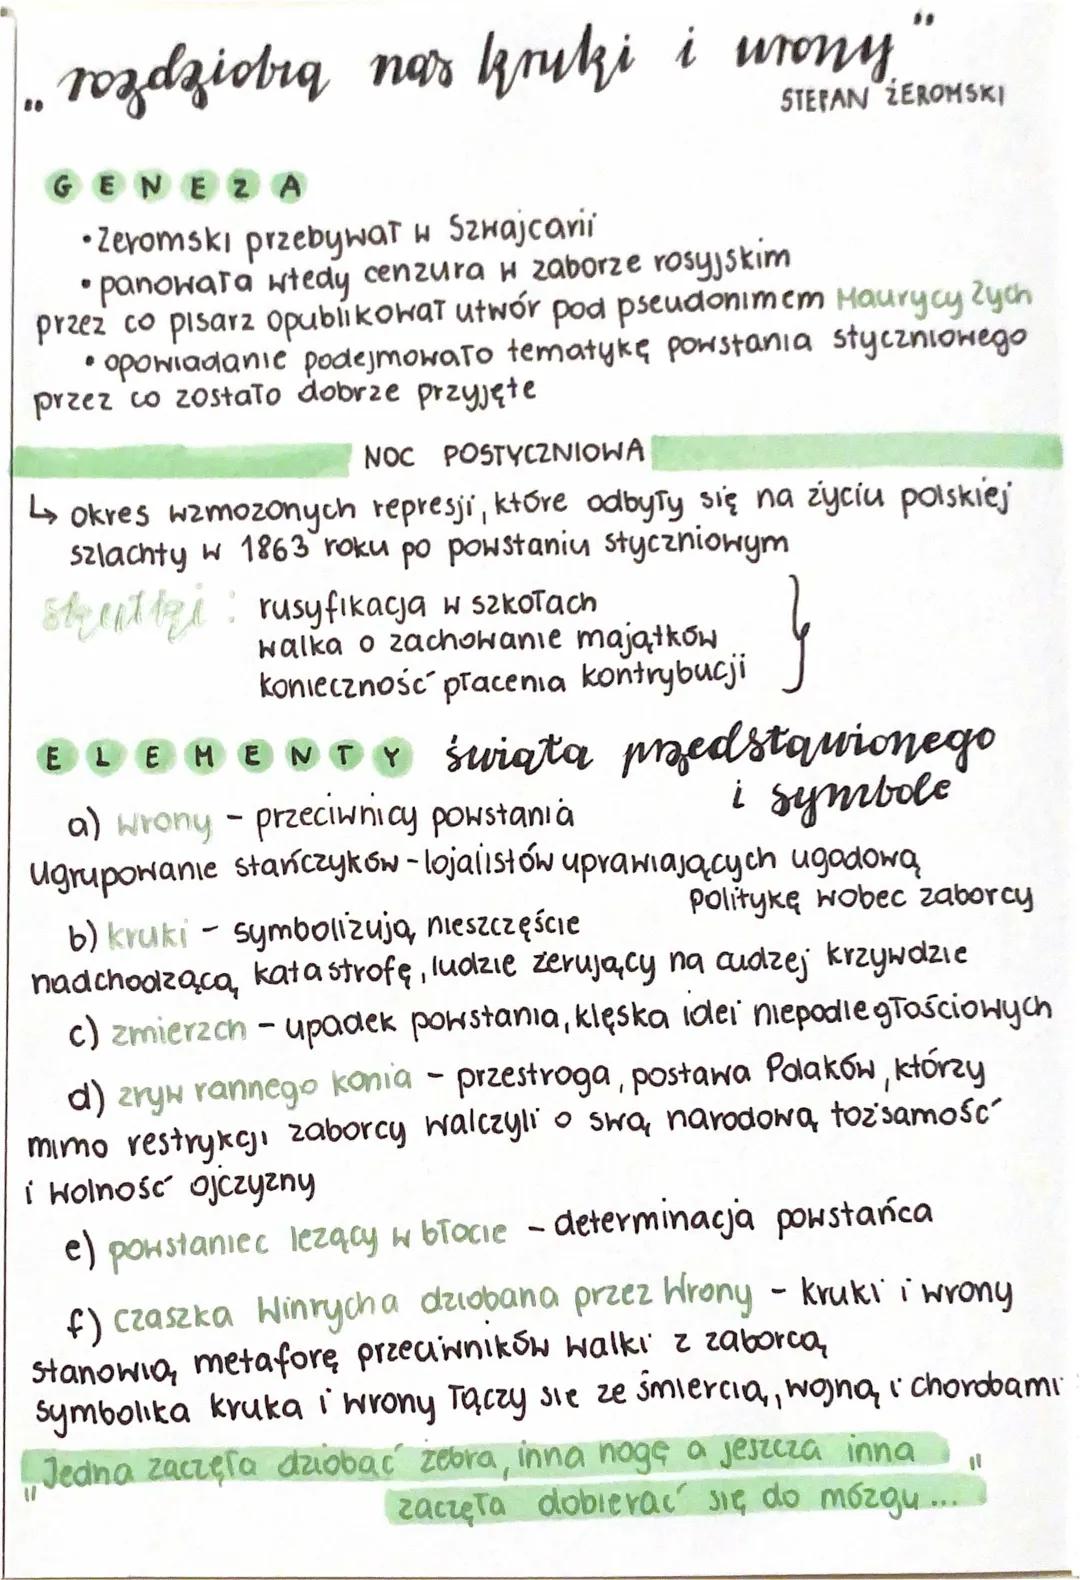 „rozdziobią nas kruki i wrony"
STEFAN ŻEROMSKI
GENEZA
•Żeromski przebywał w Szwajcarii
•panowała wtedy cenzura w zaborze rosyjskim
przez co pisarz opublikował utwór pod pseudonimem Maurycy Zych
•opowiadanie podejmowało tematykę powstania styczniowego
przez co zostało dobrze przyjęte
NOC POSTYCZNIOWA
↳ okres wzmożonych represji, które odbyły się na życiu polskiej
szlachty w 1863 roku po powstaniu styczniowym
skutki: rusyfikacja w szkołach
walka o zachowanie majątków
konieczność płacenia kontrybucji
ELEMENTY świata przedstawionego
i symbole
a) wrony - przeciwnicy powstania
Ugrupowanie stańczyków - lojalistów uprawiających ugodową
politykę wobec zaborcy
b) kruki - symbolizują nieszczęście
nadchodzącą katastrofę, ludzie żerujący na cudzej krzywdzie
c) zmierzch - upadek powstania, klęska idei niepodległościowych
d) zryw rannego konia - przestroga, postawa Polaków, którzy
mimo restrykcji zaborcy walczyli o swą narodową tożsamość
i wolność ojczyzny
e) powstaniec leżący w błocie - determinacja powstańca
f) czaszka Winrycha dziobana przez Wrony - kruki i wrony
stanowią metaforę przeciwników walki z zaborcą,
symbolika kruka i wrony łączy się ze śmiercią, wojną i chorobami
„Jedna zaczęła dziobać żebra, inna nogę a jeszcza inna
zaczęła dobierać się do mózgu..."